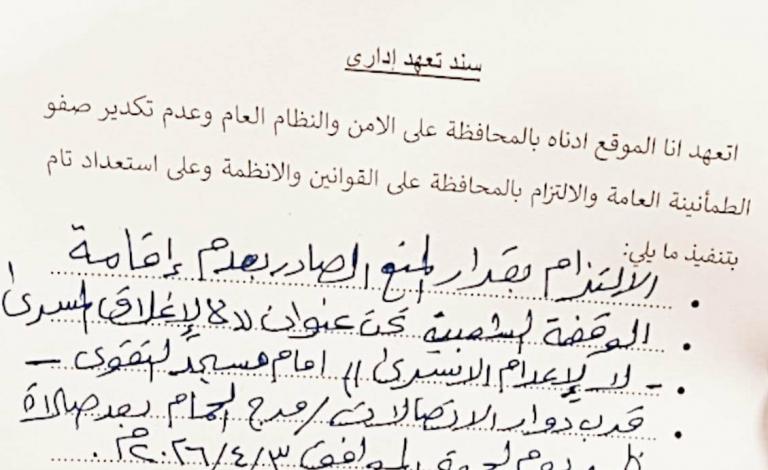 سند تعهد إداري
اتعهد انا الموقع ادناه بالمحافظة على الامن والنظام العام وعدم تكدير صفو
الطمأنينة العامة والالتزام بالمحافظة على القوانين والانظمة وعلى استعداد تام
بتنفيذ ما يلي:
• الالتزام بقرار المنع الصادر بعدم إقامة
• الوقفة الشعبية تحت عنوان لا لإغلاق المسرى
• - لا لإعدام الاسرى " امام مسجد التقوى -
• قرب دوار الاتصالات / مرج الحمام بعد صلاة
يوم الجمعة الموافق ٢٠٢٦/٤/٣م.